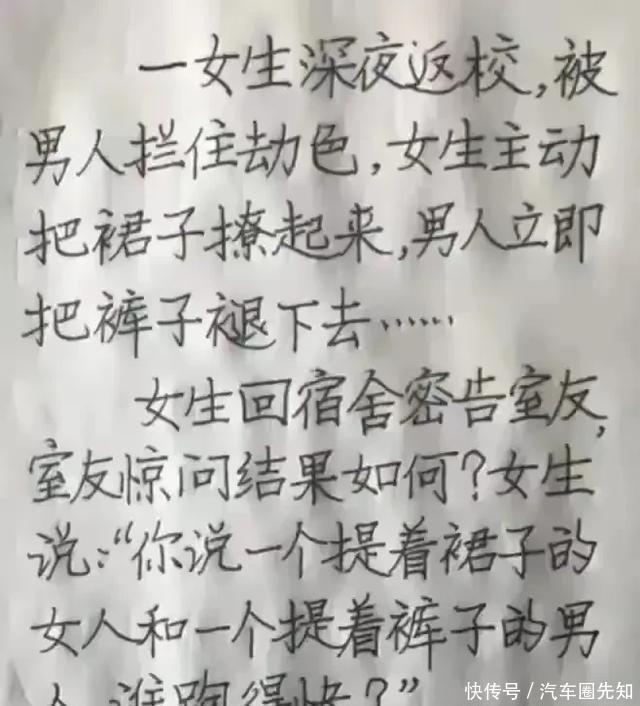 一女生深夜返校,被
男人拦住劫色,女生主动
把裙子撩起来,男人立即
把裤子褪下去……
女生回宿舍密告室友,
室友惊问结果如何?女生
说:“你说一个提着裙子的
女人和一个提着裤子的男
人,谁跑得快?”
快传号/汽车圈先知